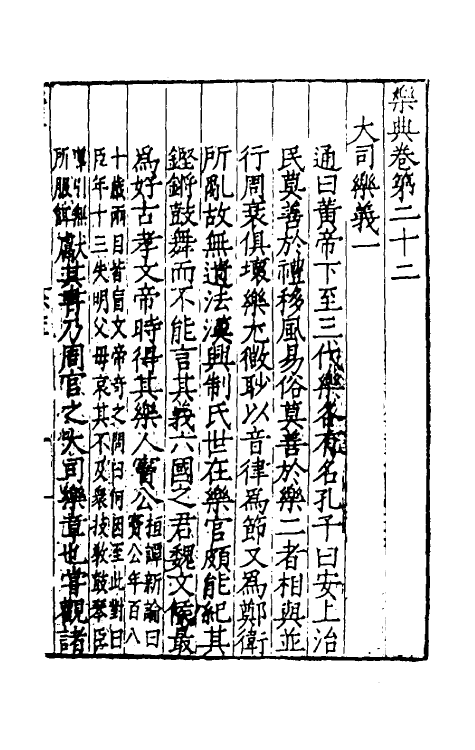 樂典卷第二十二
大司樂義一
通曰黃帝下至三代樂各有名孔子曰安上治
民莫善於禮移風易俗莫善於樂二者相與並
行周衰俱壞樂尤微眇以音律為節又為鄭衛
所亂故無遺法漢興制氏世在樂官頗能紀其
鏗鏘鼓舞而不能言其義六國之君魏文侯最
為好古孝文帝時得其樂人竇公桓譚新論曰竇公年百八
十歲兩目皆盲文帝奇之問曰何因至此對曰
臣年十三失明父母哀其不及衆技教鼓琴臣
導引無
所服餌獻其書乃周官之大司樂章也嘗觀諸